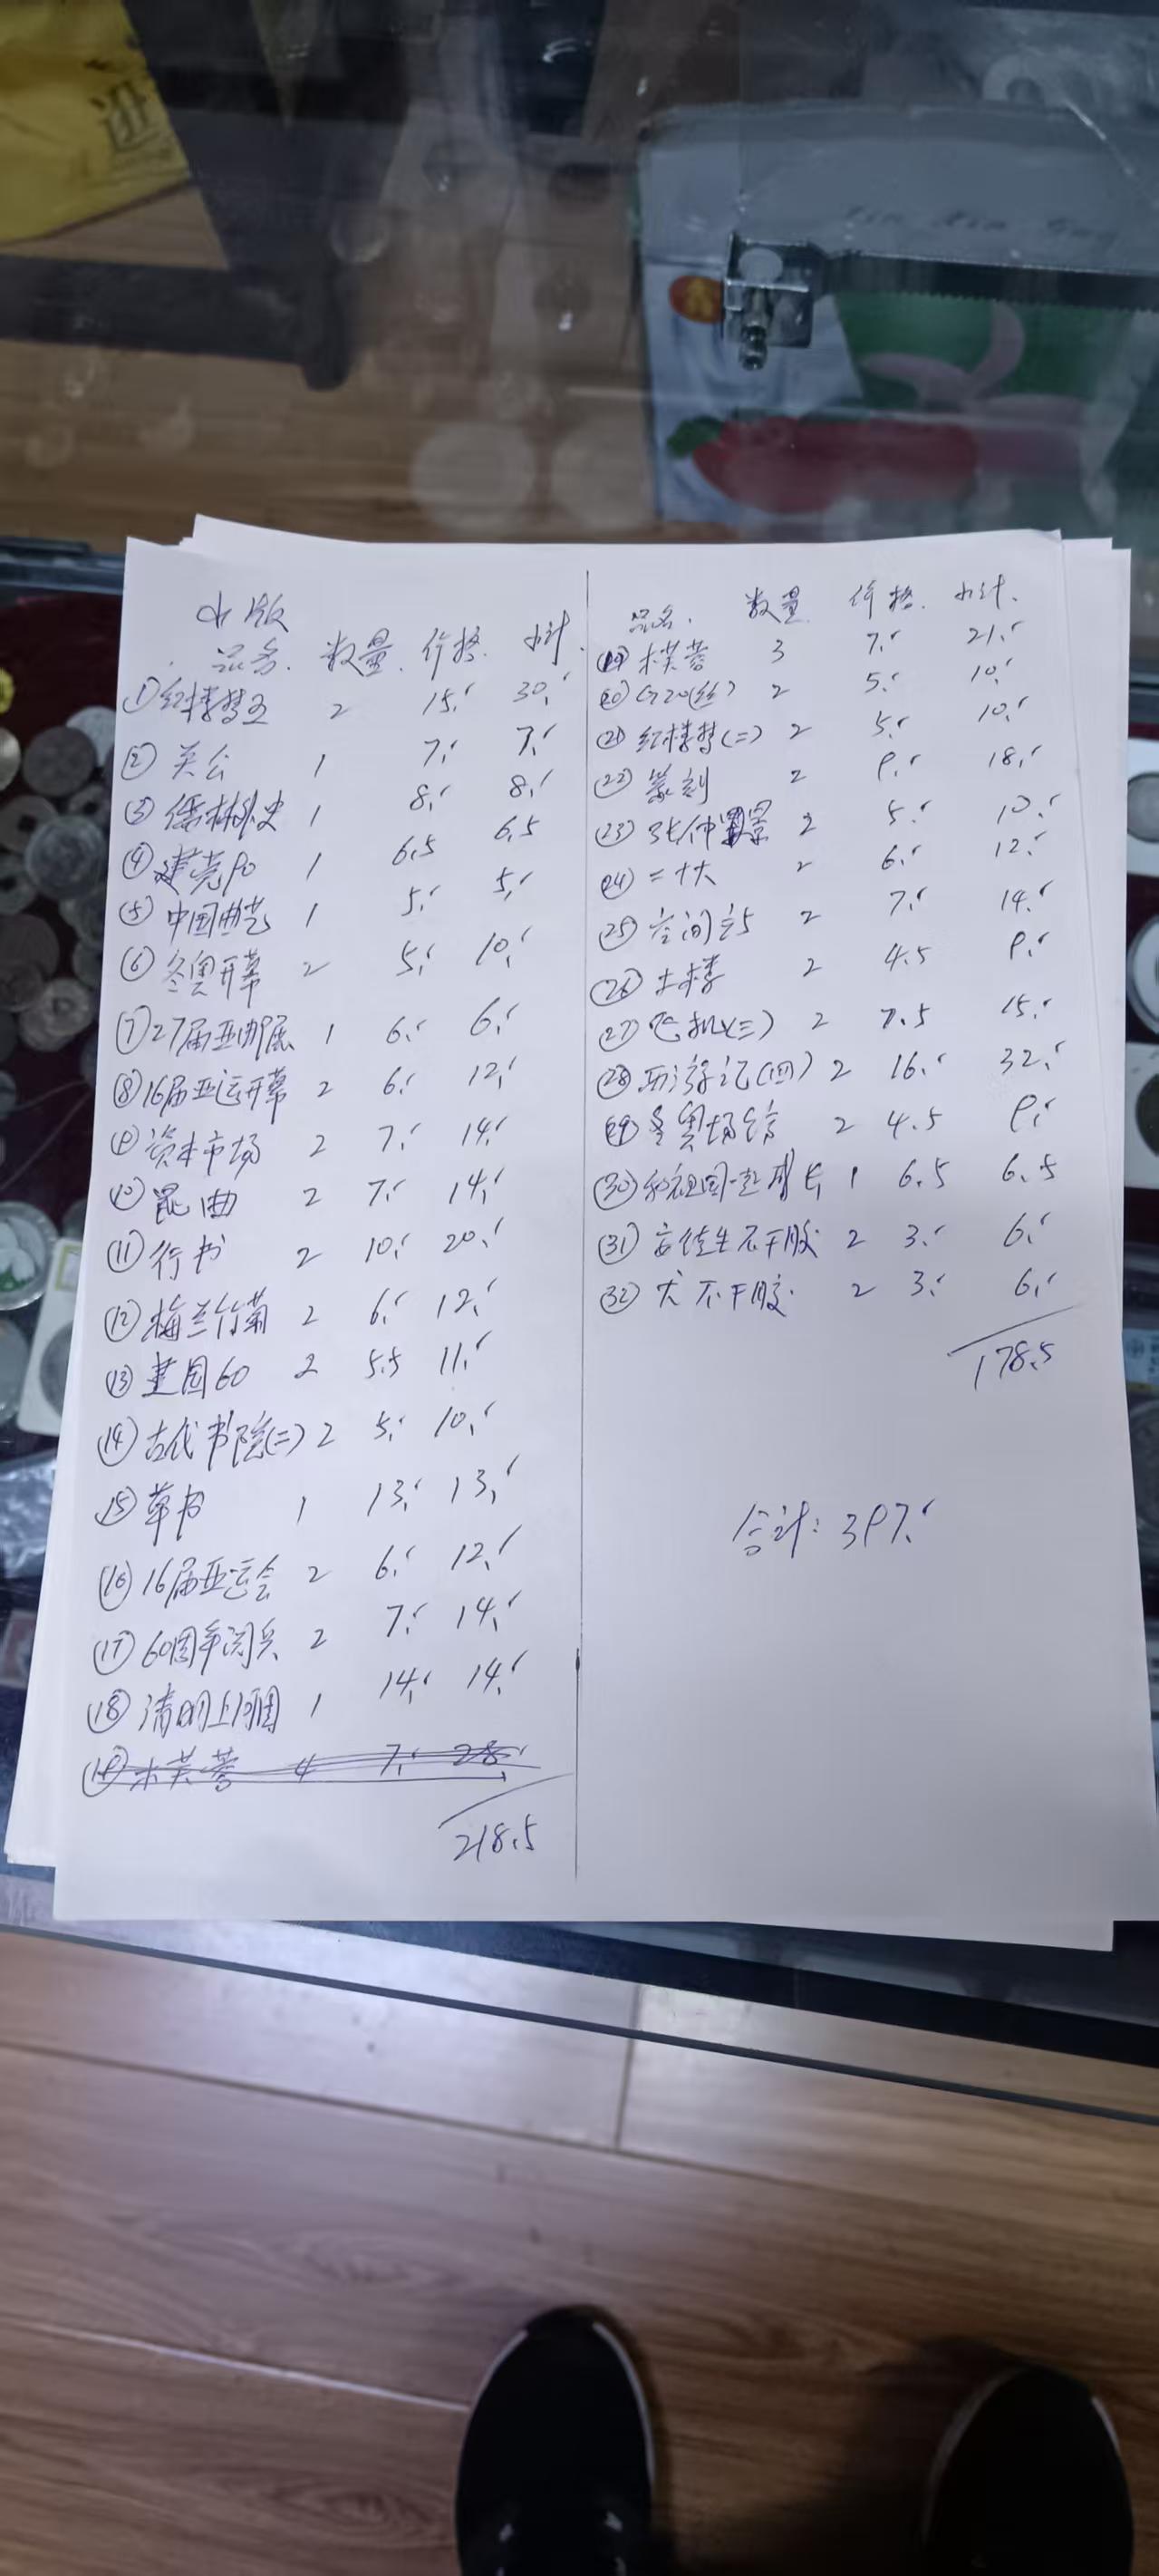 逛
小版
品名. 数量. 价格. 小计.
① 红楼梦五 2 15. 30.
② 关公 1 7. 7.
③ 儒林外史 1 8. 8.
④ 建党90 1 6.5 6.5
⑤ 中国曲艺 1 5. 5.
⑥ 冬奥开幕 2 5. 10.
⑦ 27届亚邮展 1 6. 6.
⑧ 16届亚运开幕 2 6. 12.
⑨ 资本市场 2 7. 14.
⑩ 昆曲 2 7. 14.
⑪ 行书 2 10. 20.
⑫ 梅兰竹菊 2 6. 12.
⑬ 建国60 2 5.5 11.
⑭ 古代书院(二) 2 5. 10.
⑮ 草书 1 13. 13.
⑯ 16届亚运会 2 6. 12.
⑰ 60周年阅兵 2 7. 14.
⑱ 清明上河图 1 14. 14.
⑲ 木芙蓉 4 7. 28.
218.5
品名. 数量. 价格. 小计.
⑲ 木芙蓉 3 7. 21.
⑳ G20(丝) 2 5. 10.
㉑ 红楼梦(二) 2 5. 10.
㉒ 篆刻 2 9. 18.
㉓ 张仲景 2 5. 10.
㉔ 二十大 2 6. 12.
㉕ 空间站 2 7. 14.
㉖ 土楼 2 4.5 9.
㉗ 飞机(三) 2 7.5 15.
㉘ 西游记(四) 2 16. 32.
㉙ 冬奥场馆 2 4.5 9.
㉚ 和祖国一起成长 1 6.5 6.5
㉛ 安徒生不干胶 2 3. 6.
㉜ 犬不干胶. 2 3. 6.
178.5
合计: 397.